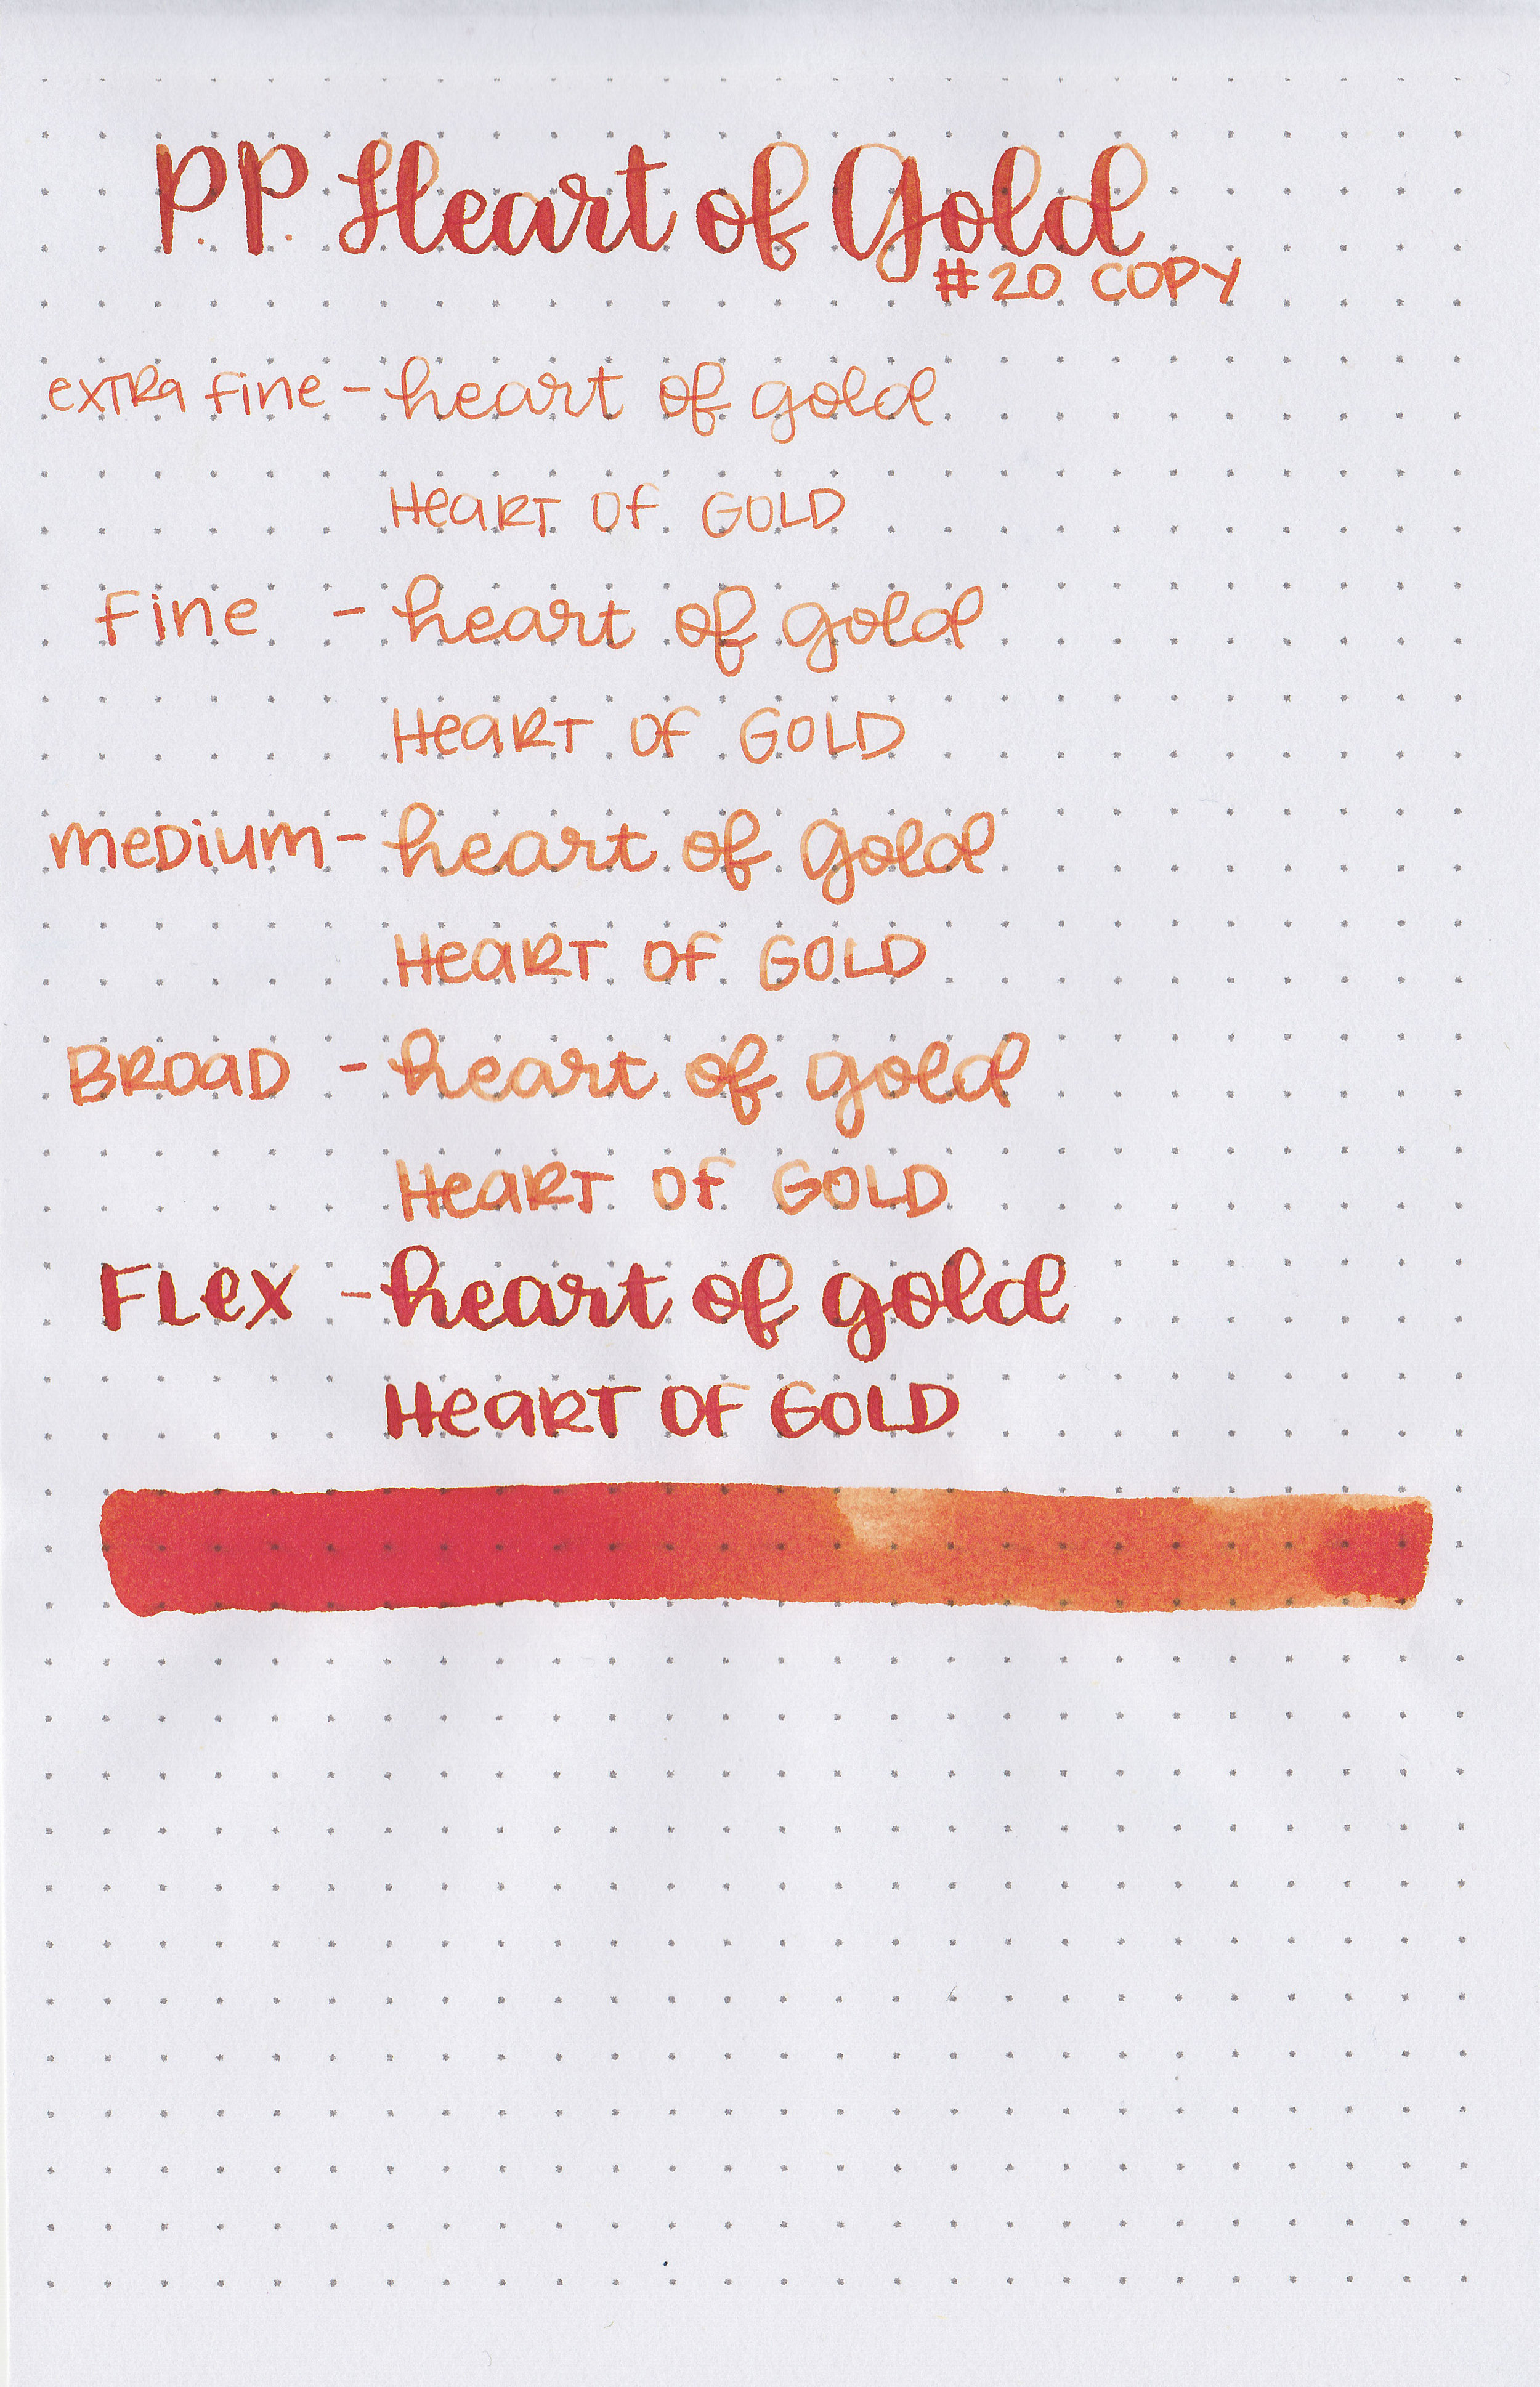 P.P. Heart of Gold
#20 COPY
extra fine - heart of gold
HeaRT OF GOLD
Fine - heart of gold
HeaRT OF GOLD
meDium - heart of gold
HeaRT OF GOLD
BROaD - heart of gold
HeaRT OF GOLD
FLex - heart of gold
HeaRT OF GOLD